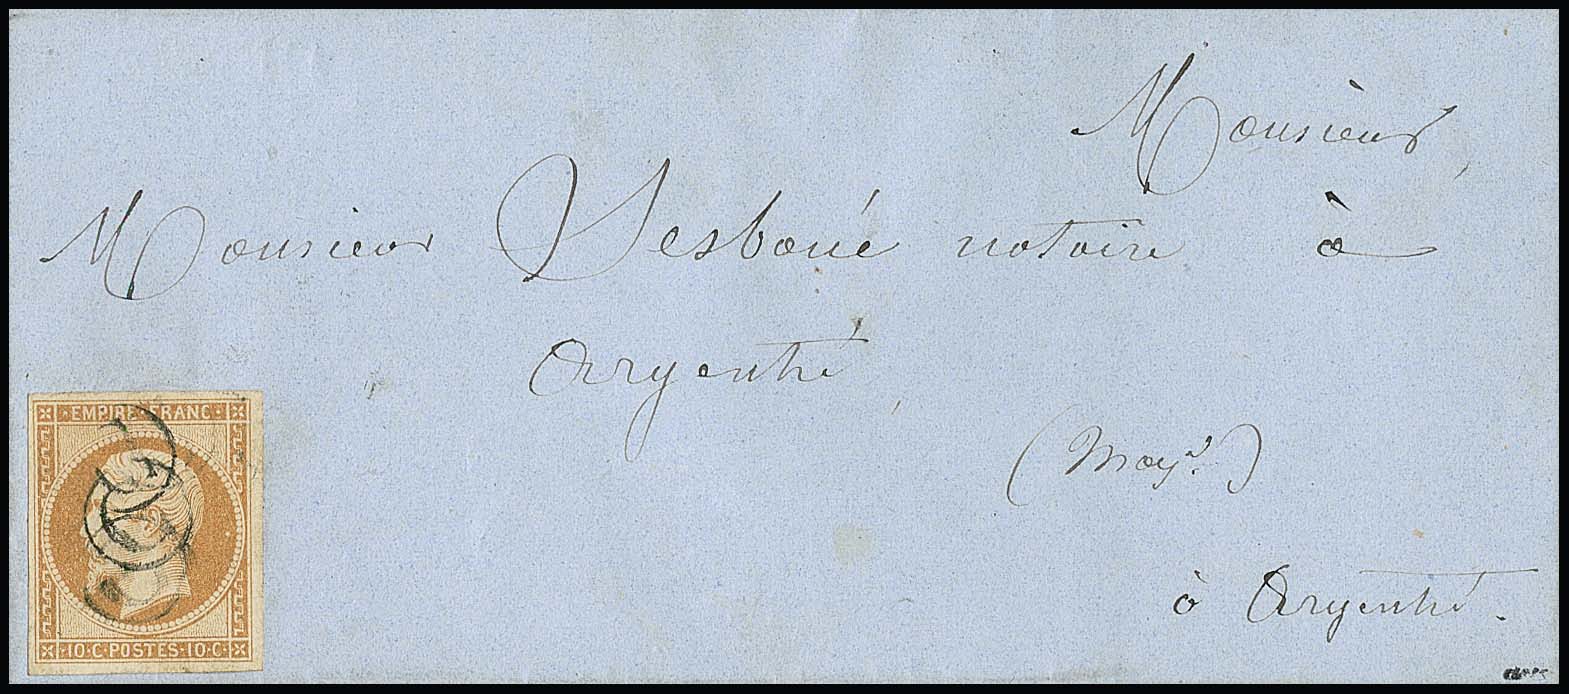 Monsieur
Monsieur Sesboué notaire à
Argentré
(May.e)
à Argentré.
EMPIRE FRANC
10 · C · POSTES · 10 · C